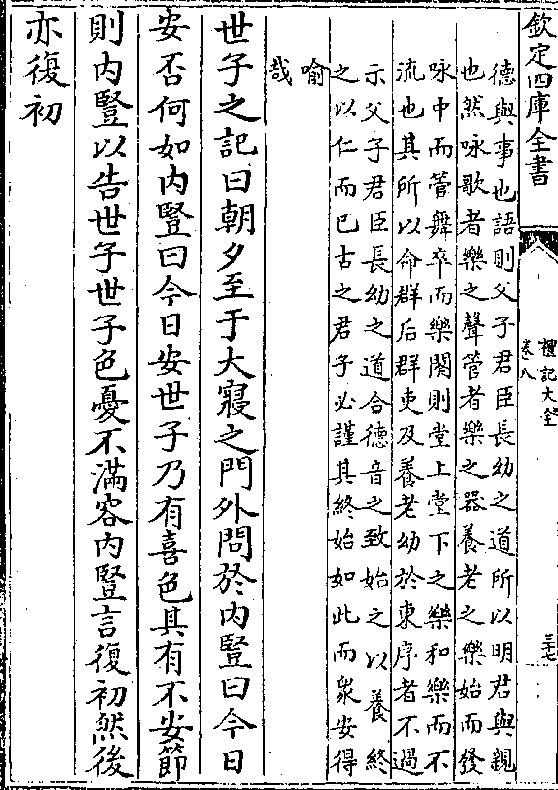 欽定四庫全書
禮記大全
卷八
三七
德與事也語則父子君臣長幼之道所以明君與親
也然咏歌者樂之聲管者樂之器養老之樂始而發
咏中而管舞卒而樂闋則堂上堂下之樂和樂而不
流也其所以命群后群吏及養老幼於東序者不過
示父子君臣長幼之道合德音之致始之以養終
之以仁而已古之君子必謹其終始如此而衆安得
喻
哉
世子之記曰朝夕至于大寢之門外問於内豎曰今日
安否何如内豎曰今日安世子乃有喜色其有不安節
則内豎以告世子世子色憂不滿容内豎言復初然後
亦復初